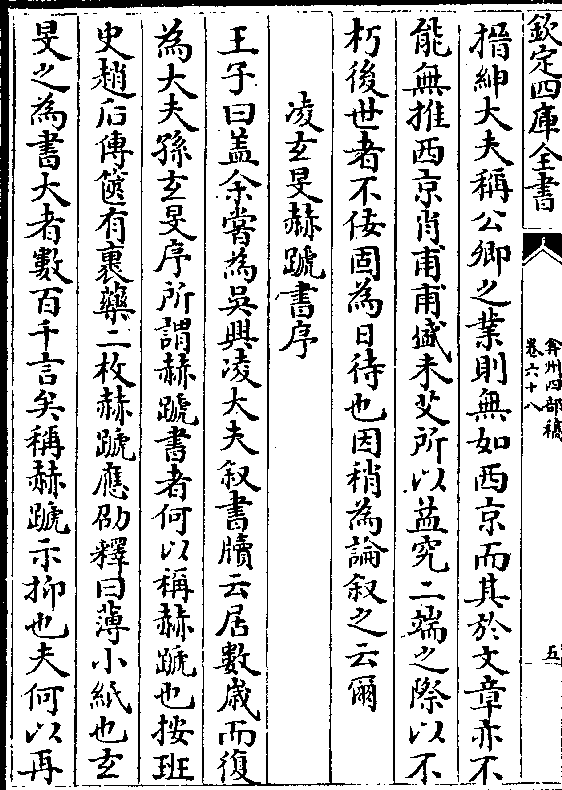 欽定四庫全書
弇州四部稿
卷六十八
五
搢紳大夫稱公卿之業則無如西京而其於文章亦不
能無推西京肖甫甫盛未艾所以益究二端之際以不
朽後世者不佞固為日待也因稍為論叙之云爾
凌玄旻赫蹏書序
王子曰盖余嘗為吳興凌大夫叙書牘云居數歲而復
為大夫孫玄旻序所謂赫蹏書者何以稱赫蹏也按班
史趙后傳篋有裹藥二枚赫蹏應劭釋曰薄小紙也玄
旻之為書大者數百千言矣稱赫蹏示抑也夫何以再